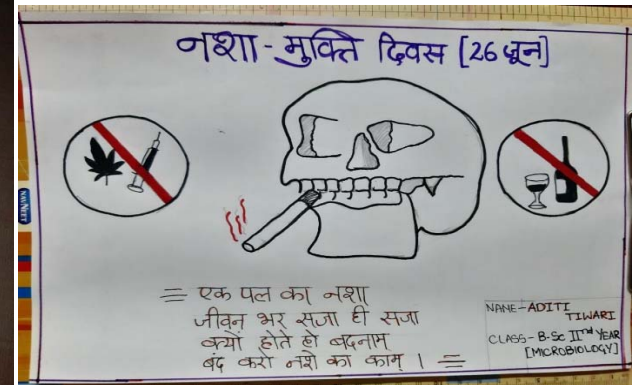 नशा-मुक्ति दिवस [26 जून]
NAVNEET
= एक पल का नशा
जीवन भर सजा ही सजा
क्यों होते हो बदनाम
बंद करो नशे का काम । =
NAME-ADITI
TIWARI
CLASS-B-Sc IInd YEAR
[MICROBIOLOGY]